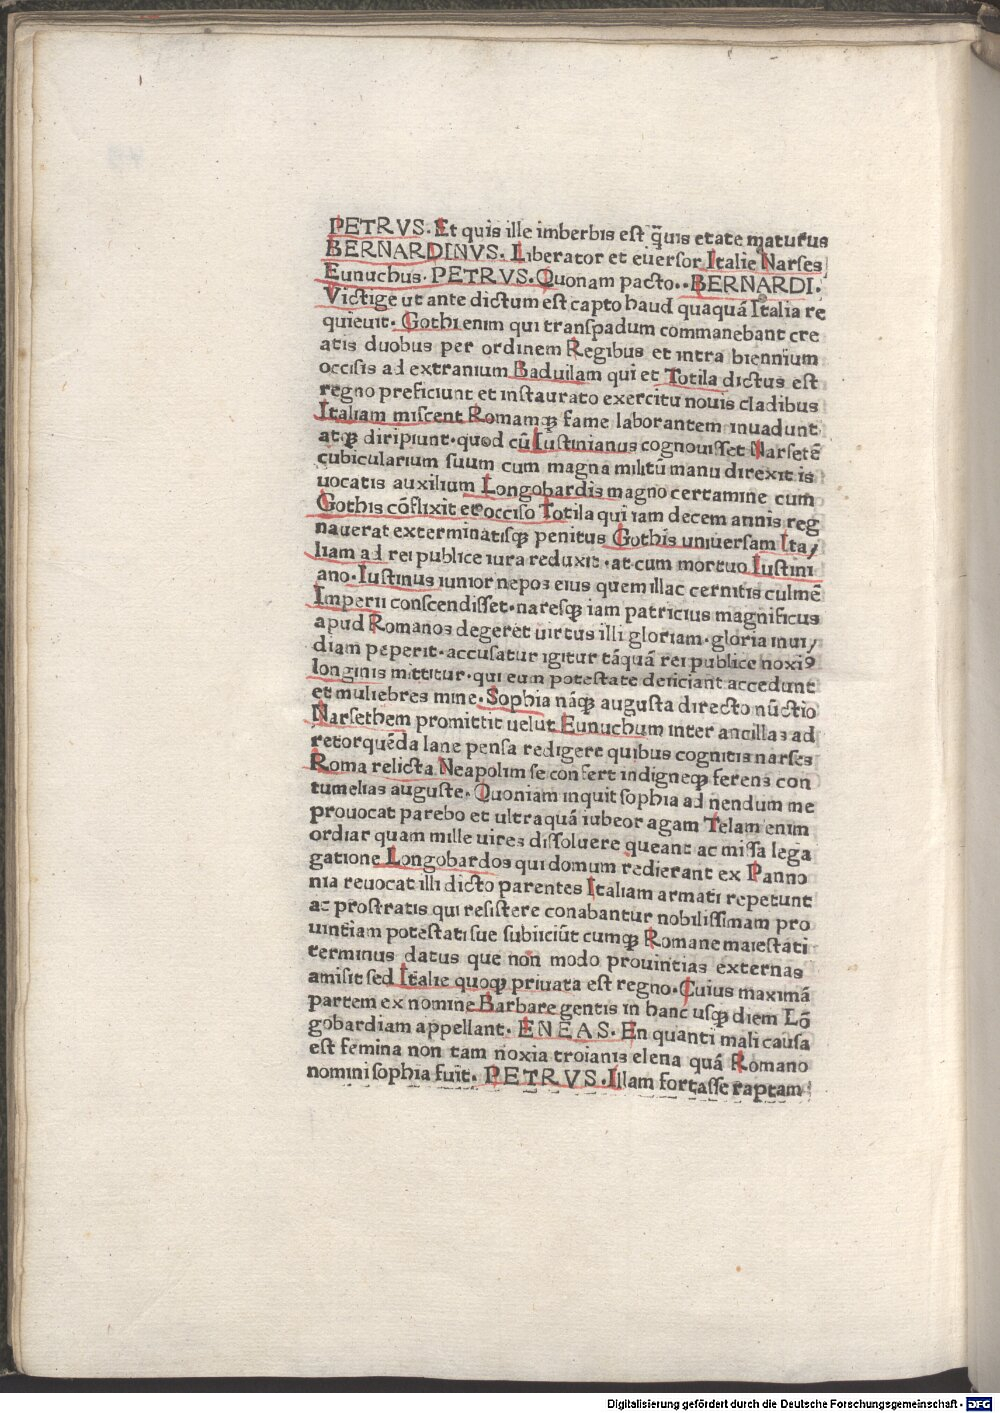 PETRVS. Et quis ille imberbis est q̃uis etate maturus
BERNARDINVS. Liberator et euersor Italie Narses
Eunuchus. PETRVS. Quonam pacto.. BERNARDI.
Victige ut ante dictum est capto haud quaquã Italia re
quieuit. Gothi enim qui transpadum commanebant cre
atis duobus per ordinem Regibus et intra biennium
occisis ad extranium Baduilam qui et Totila dictus est
regno preficiunt et instaurato exercitu nouis cladibus
Italiam miscent Romamqꝫ fame laborantem inuadunt
atqꝫ diripiunt. quod cũ Iustinianus cognouisset Narsetẽ
cubicularium suum cum magna militũ manu direxit is
uocatis auxilium Longobardis magno certamine cum
Gothis cõflixit et occiso Totila qui iam decem annis reg
nauerat exterminatisqꝫ penitus Gothis uniuersam Ita/
liam ad rei publice iura reduxit. at cum mortuo Iustini
ano. Iustinus iunior nepos eius quem illac cernitis culmẽ
Imperii conscendisset. naresqꝫ iam patricius magnificus
apud Romanos degeret uirtus illi gloriam. gloria inui/
diam peperit. accusatur igitur tãquã rei publice noxiꝰ
longinis mittitur. qui eum potestate deiiciant accedunt
et muliebres mine. Sophia nãqꝫ augusta directo nũctio
Narsethem promittit uelut Eunuchum inter ancillas ad
retorquẽda lane pensa redigere quibus cognitis narses
Roma relicta Neapolim se confert indigneqꝫ ferens con
tumelias auguste. Quoniam inquit sophia ad nendum me
prouocat parebo et ultraquã iubeor agam Telam enim
ordiar quam mille uires dissoluere queant ac missa lega
gatione Longobardos qui domum redierant ex Panno
nia reuocat illi dicto parentes Italiam armati repetunt
ac prostratis qui resistere conabantur nobilissimam pro
uintiam potestati sue subiiciũt cumqꝫ Romane maiestati
terminus datus que non modo prouintias externas
amisit sed Italie quoqꝫ priuata est regno. Cuius maximã
partem ex nomine Barbare gentis in hanc usqꝫ diem Lõ
gobardiam appellant. ENEAS. En quanti mali causa
est femina non tam noxia troianis elena quã Romano
nomini sophia fuit. PETRVS. Illam fortasse raptam
Digitalisierung gefördert durch die Deutsche Forschungsgemeinschaft - DFG